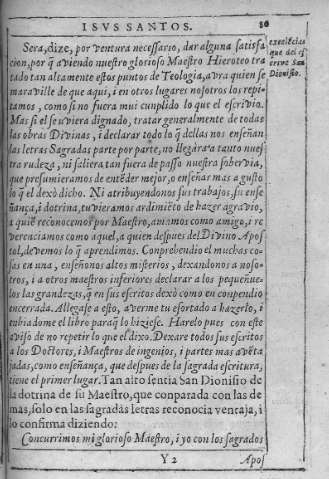 ISVS SANTOS.
80
Sera, dize, por ventura necessario, dar alguna satisfa
cion, por q̃ aviendo nuestro glorioso Maestro Hieroteo tra
tado tan altamente estos puntos de Teologia, avra quien se
maraville de que aqui, i en otros lugares nosotros los repi
tamos, como si no fuera mui cunplido lo que el escrivio.
Mas si el se uviera dignado, tratar generalmente de todas
las obras Divinas, i declarar todo lo q̃ dellas nos enseñan
las letras Sagradas parte por parte, no llegára a tanto nues
tra rudeza, ni saliera tan fuera de passo nuestra sobervia,
que presumieramos de entẽder mejor, o enseñar mas a gusto
lo q̃ el dexò dicho. Ni atribuyendonos sus trabajos, su ense
ñança, i dotrina, tuvieramos ardimiẽto de hazer agravio,
a quiẽ reconocemos por Maestro, amamos como amigo, i re
verenciamos como aquel, a quien despues del Divino Apos
tol, devemos lo q̃ aprendimos. Conprehendio el muchas co-
sas en una, enseñonos altos misterios, dexandonos a noso-
tros, i a otros maestros inferiores declarar a los pequeñue-
los las grandezas, q̃ en sus escritos dexò como en conpendio
encerrada. Allegase a esto, averme tu esortado a hazerlo, i
enbiadome el libro paraq̃ lo hiziese. Harelo pues con este
aviso de no repetir lo que el dixo. Dexare todos sus escritos
a los Doctores, i Maestros de ingenios, i partes mas avẽta
jadas, como enseñança, que despues de la sagrada escritura,
tiene el primer lugar. Tan alto sentia San Dionisio de
la dotrina de su Maestro, que conparada con las de
mas, solo en las sagradas letras reconocia ventaja, i
lo confirma diziendo:
Concurrimos mi glorioso Maestro, i yo con los sagrados
Y 2
Apos
excelẽcias
que del es
crive San
Dionisio.